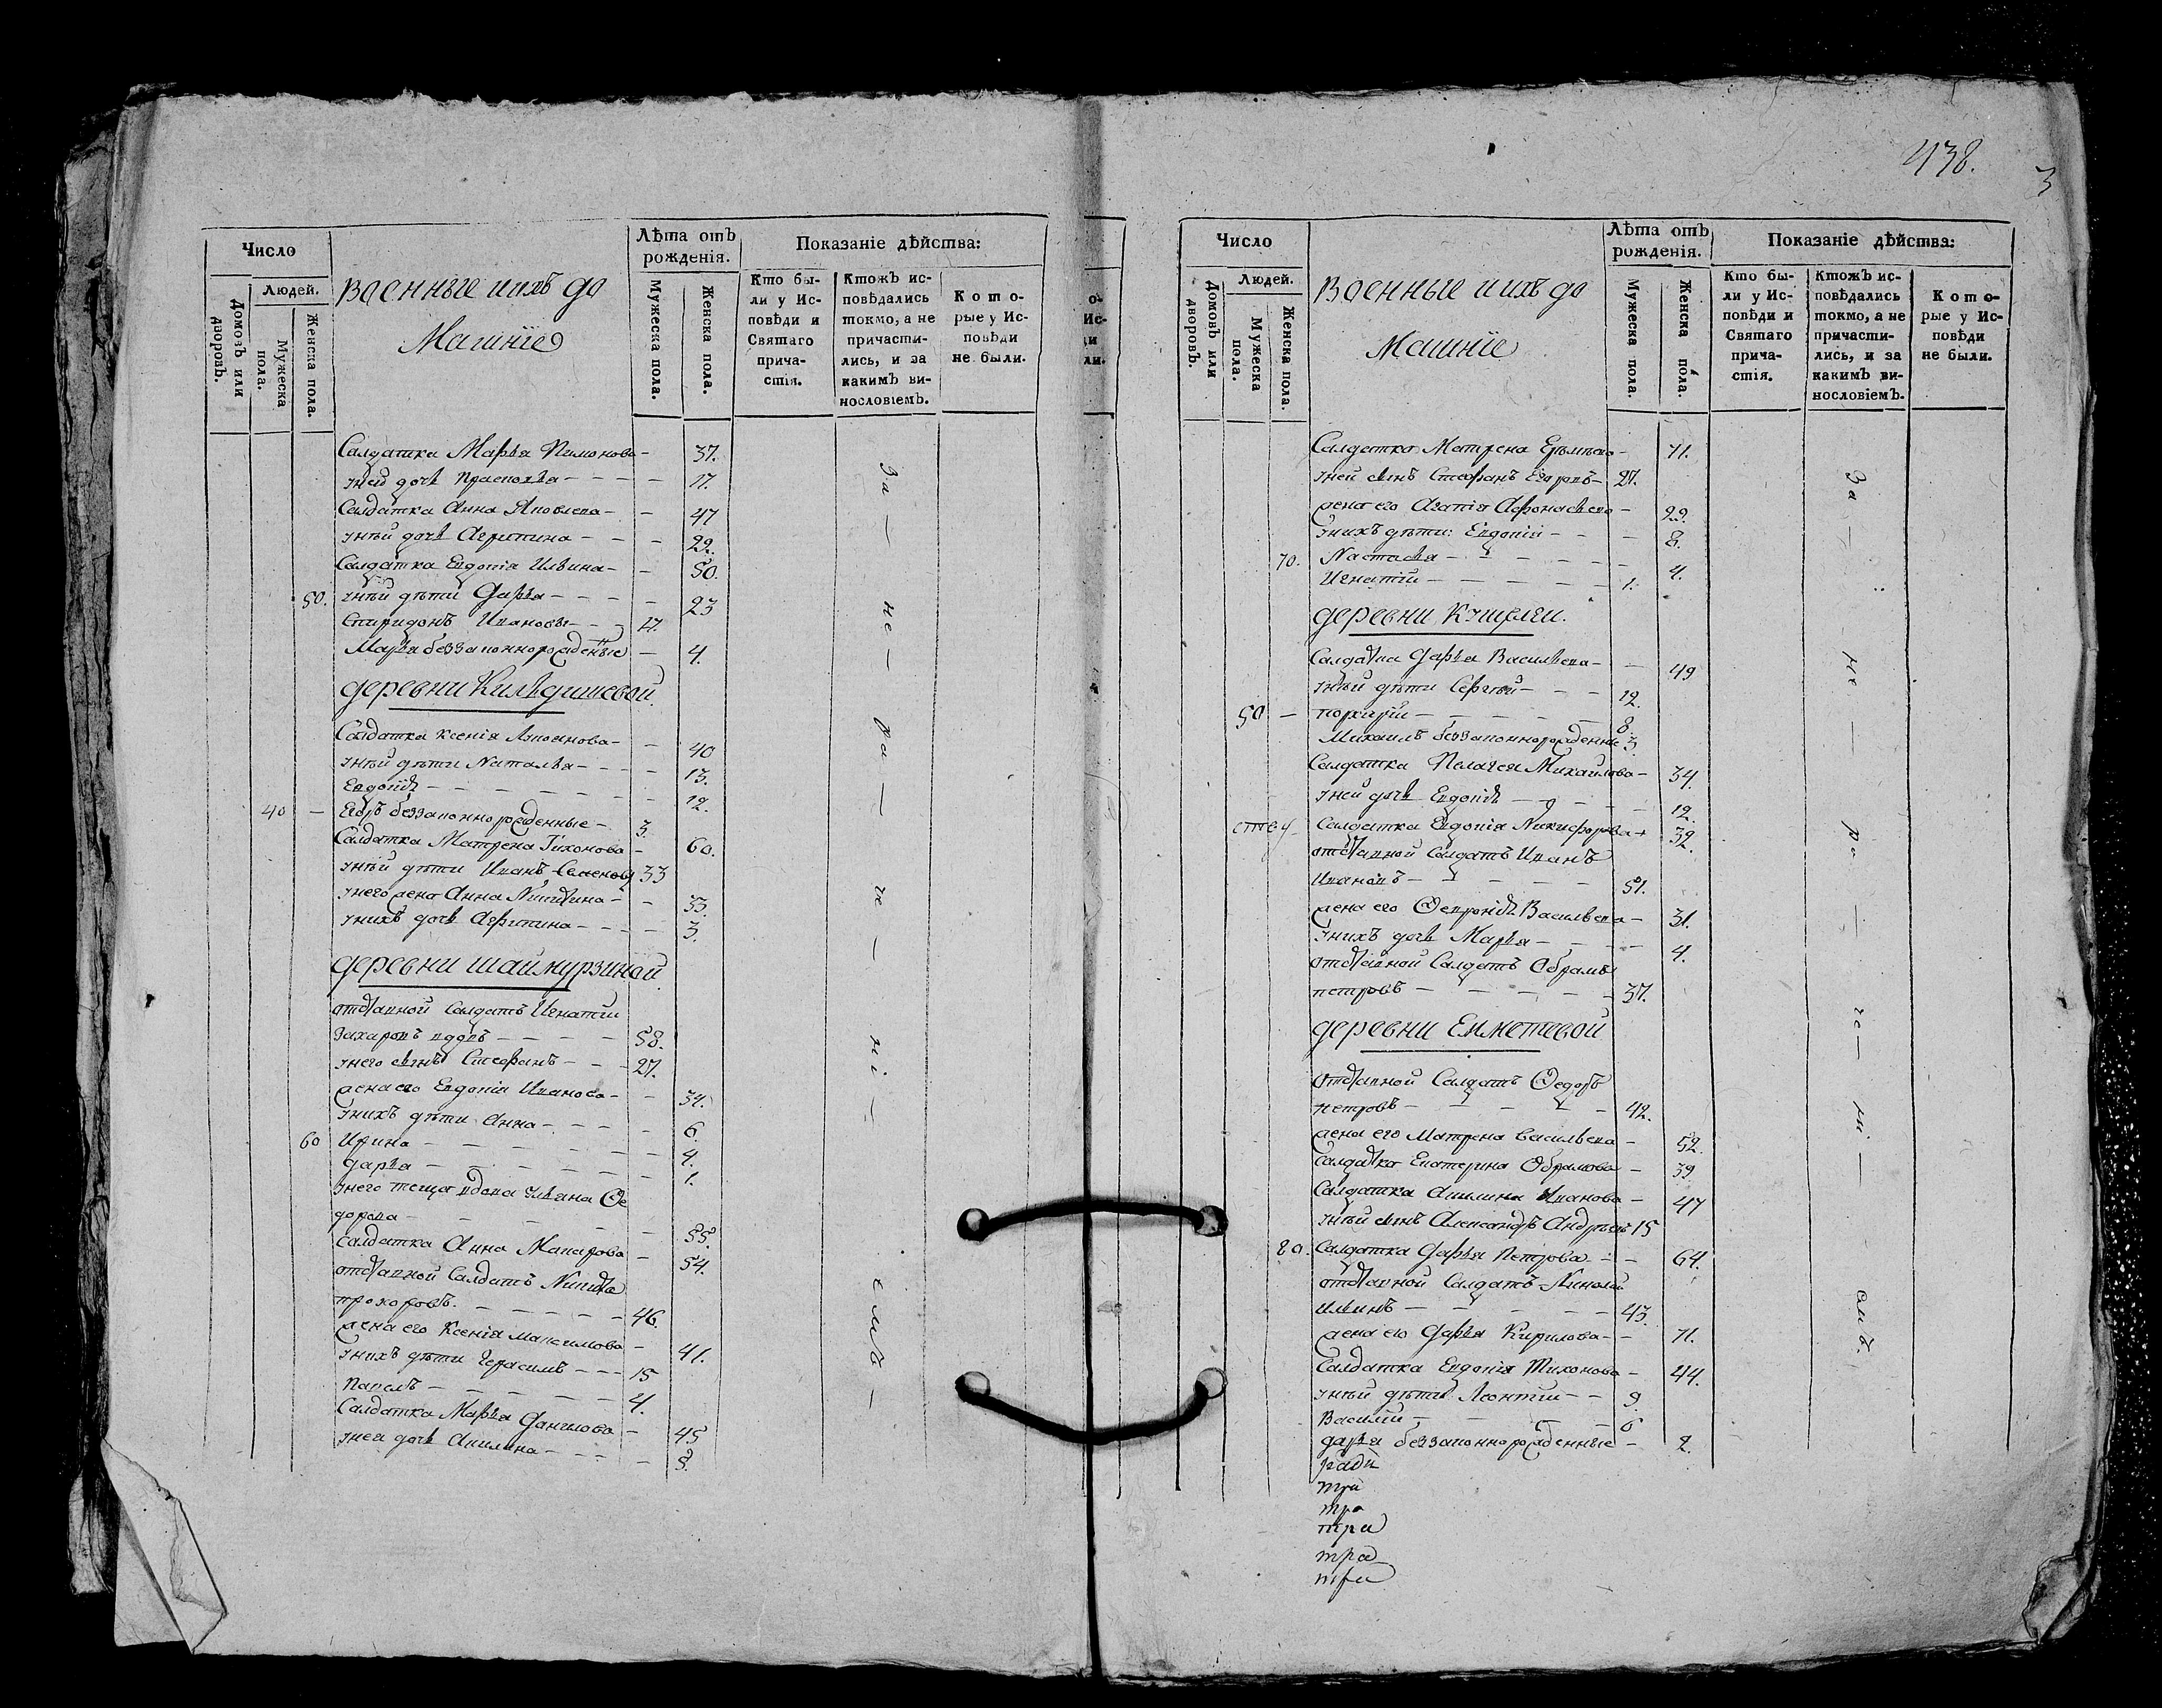 438.
3
Число
Людей.
Домовъ или дворовъ.
Мужеска пола.
Женска пола.
Военные и ихъ до
Машніе
Лѣта отъ рожденія.
Мужеска пола.
Женска пола.
Показаніе дѣйства:
Кто бы-
ли у Ис-
повѣди и
Святаго
прича-
стія.
Ктожъ ис-
повѣдались
токмо, а не
причасти-
лись, и за
какимъ ви-
нословіемъ.
Кото-
рые у Ис-
повѣди
не были.
Салдатка Марья Пимонова - 37.
унеи дочь Прасковья - - - - 17.
Салдатка Анна Яковлева - - 47
унѣй дочь Агрипина - - - 22.
Салдатка Евдокія Ильина - - 50.
50. унѣй дѣти Дарья - - - - 23
Спиридонъ Ивановъ - - 17.
Марья беззаконнорожденные - 4.
деревни Кильдишевой.
Салдатка Ксенія - - 40
унѣй дѣти Наталья - - - - 13.
Евдокія - - - - - - 12.
40 - Егоръ беззаконнорожденные - 3
Салдатка Матрена Тихонова - 60.
унѣй дѣти Иванъ Семеновъ 33
унего жена Анна Никитина - - 33.
унихъ дочь Агрипина - - - - 3.
деревни шаймурзиной.
отставной Салдатъ Игнатий
Захаровъ вдовъ - - - - 58.
унего сынъ Стефанъ - - - 27.
жена его Евдокия Иванова - - 34.
унихъ дѣти Анна - - - - 6.
60 Ирина - - - - - - 4.
дарья - - - - - - 1.
унего теща вдова Ульяна Ѳе
дорова - - - - - 55.
Салдатка Анна Макарова - 54.
отставной Салдатъ Никита
прохоровъ. - - - - - 46.
жена его Ксенія максимова - 41.
унихъ дѣти Герасимъ - - - 15
Павелъ - - - - - - 4.
Салдатка Марья Данилова - 45
унеи дочь Акилина - - - - 8.
За - не - ра - че - ні - емъ -
Число
Людей.
Домовъ или дворовъ.
Мужеска пола.
Женска пола.
Военные и ихъ до
Машніе
Лѣта отъ рожденія.
Мужеска пола.
Женска пола.
Показаніе дѣйства:
Кто бы-
ли у Ис-
повѣди и
Святаго
прича-
стія.
Ктожъ ис-
повѣдались
токмо, а не
причасти-
лись, и за
какимъ ви-
нословіемъ.
Кото-
рые у Ис-
повѣди
не были.
Салдатка Матрена - 71.
унеи сынъ Стефанъ Егоровъ - 27.
жена его Агапія Афонасьева - 29.
унихъ дѣти: Евдокія - - - - 8.
70. Настасья - - - - - - 4.
Игнатій - - - - - - 1.
деревни Кищаги.
Салдатка Дарья Васильева - - 49
унѣй дѣти Сергѣй - - - 12.
50 - - - - - - 8.
Михаилъ беззаконнорожденные 3.
Салдатка Пелагея Михайлова - 34.
унеи дочь Евдокія - - - - 12.
Салдатка Евдокія Никифорова + 32.
отставной Салдатъ Иванъ
Ивановъ - - - - - 51.
жена его Ѳевронія Васильева - 31.
унихъ дочь Марья - - - - 4.
отставной Салдатъ Обрамъ
петровъ - - - - - - 37.
деревни Енметевой
Отставной Салдатъ Ѳедоръ
петровъ - - - - - 42.
жена его Матрена Васильева - 52.
Салдатка Екатерина Обрамова - 39
Салдатка Акилина Иванова - 47
унѣй сынъ Александръ Андрѣевъ 15
80. Салдатка Дарья Петрова - - 64.
отставной Салдатъ Николай
Ильинъ - - - - - 43.
жена его Дарья Кирилова - - 71.
Салдатка Евдокія Тихонова - 44.
унѣй дѣти Леонтий - - 9.
Василій - - - - - 6
дарья беззаконнорожденные - 2.
тра
тра
тра
тра
тра
За - не - ра - че - ні - емъ.